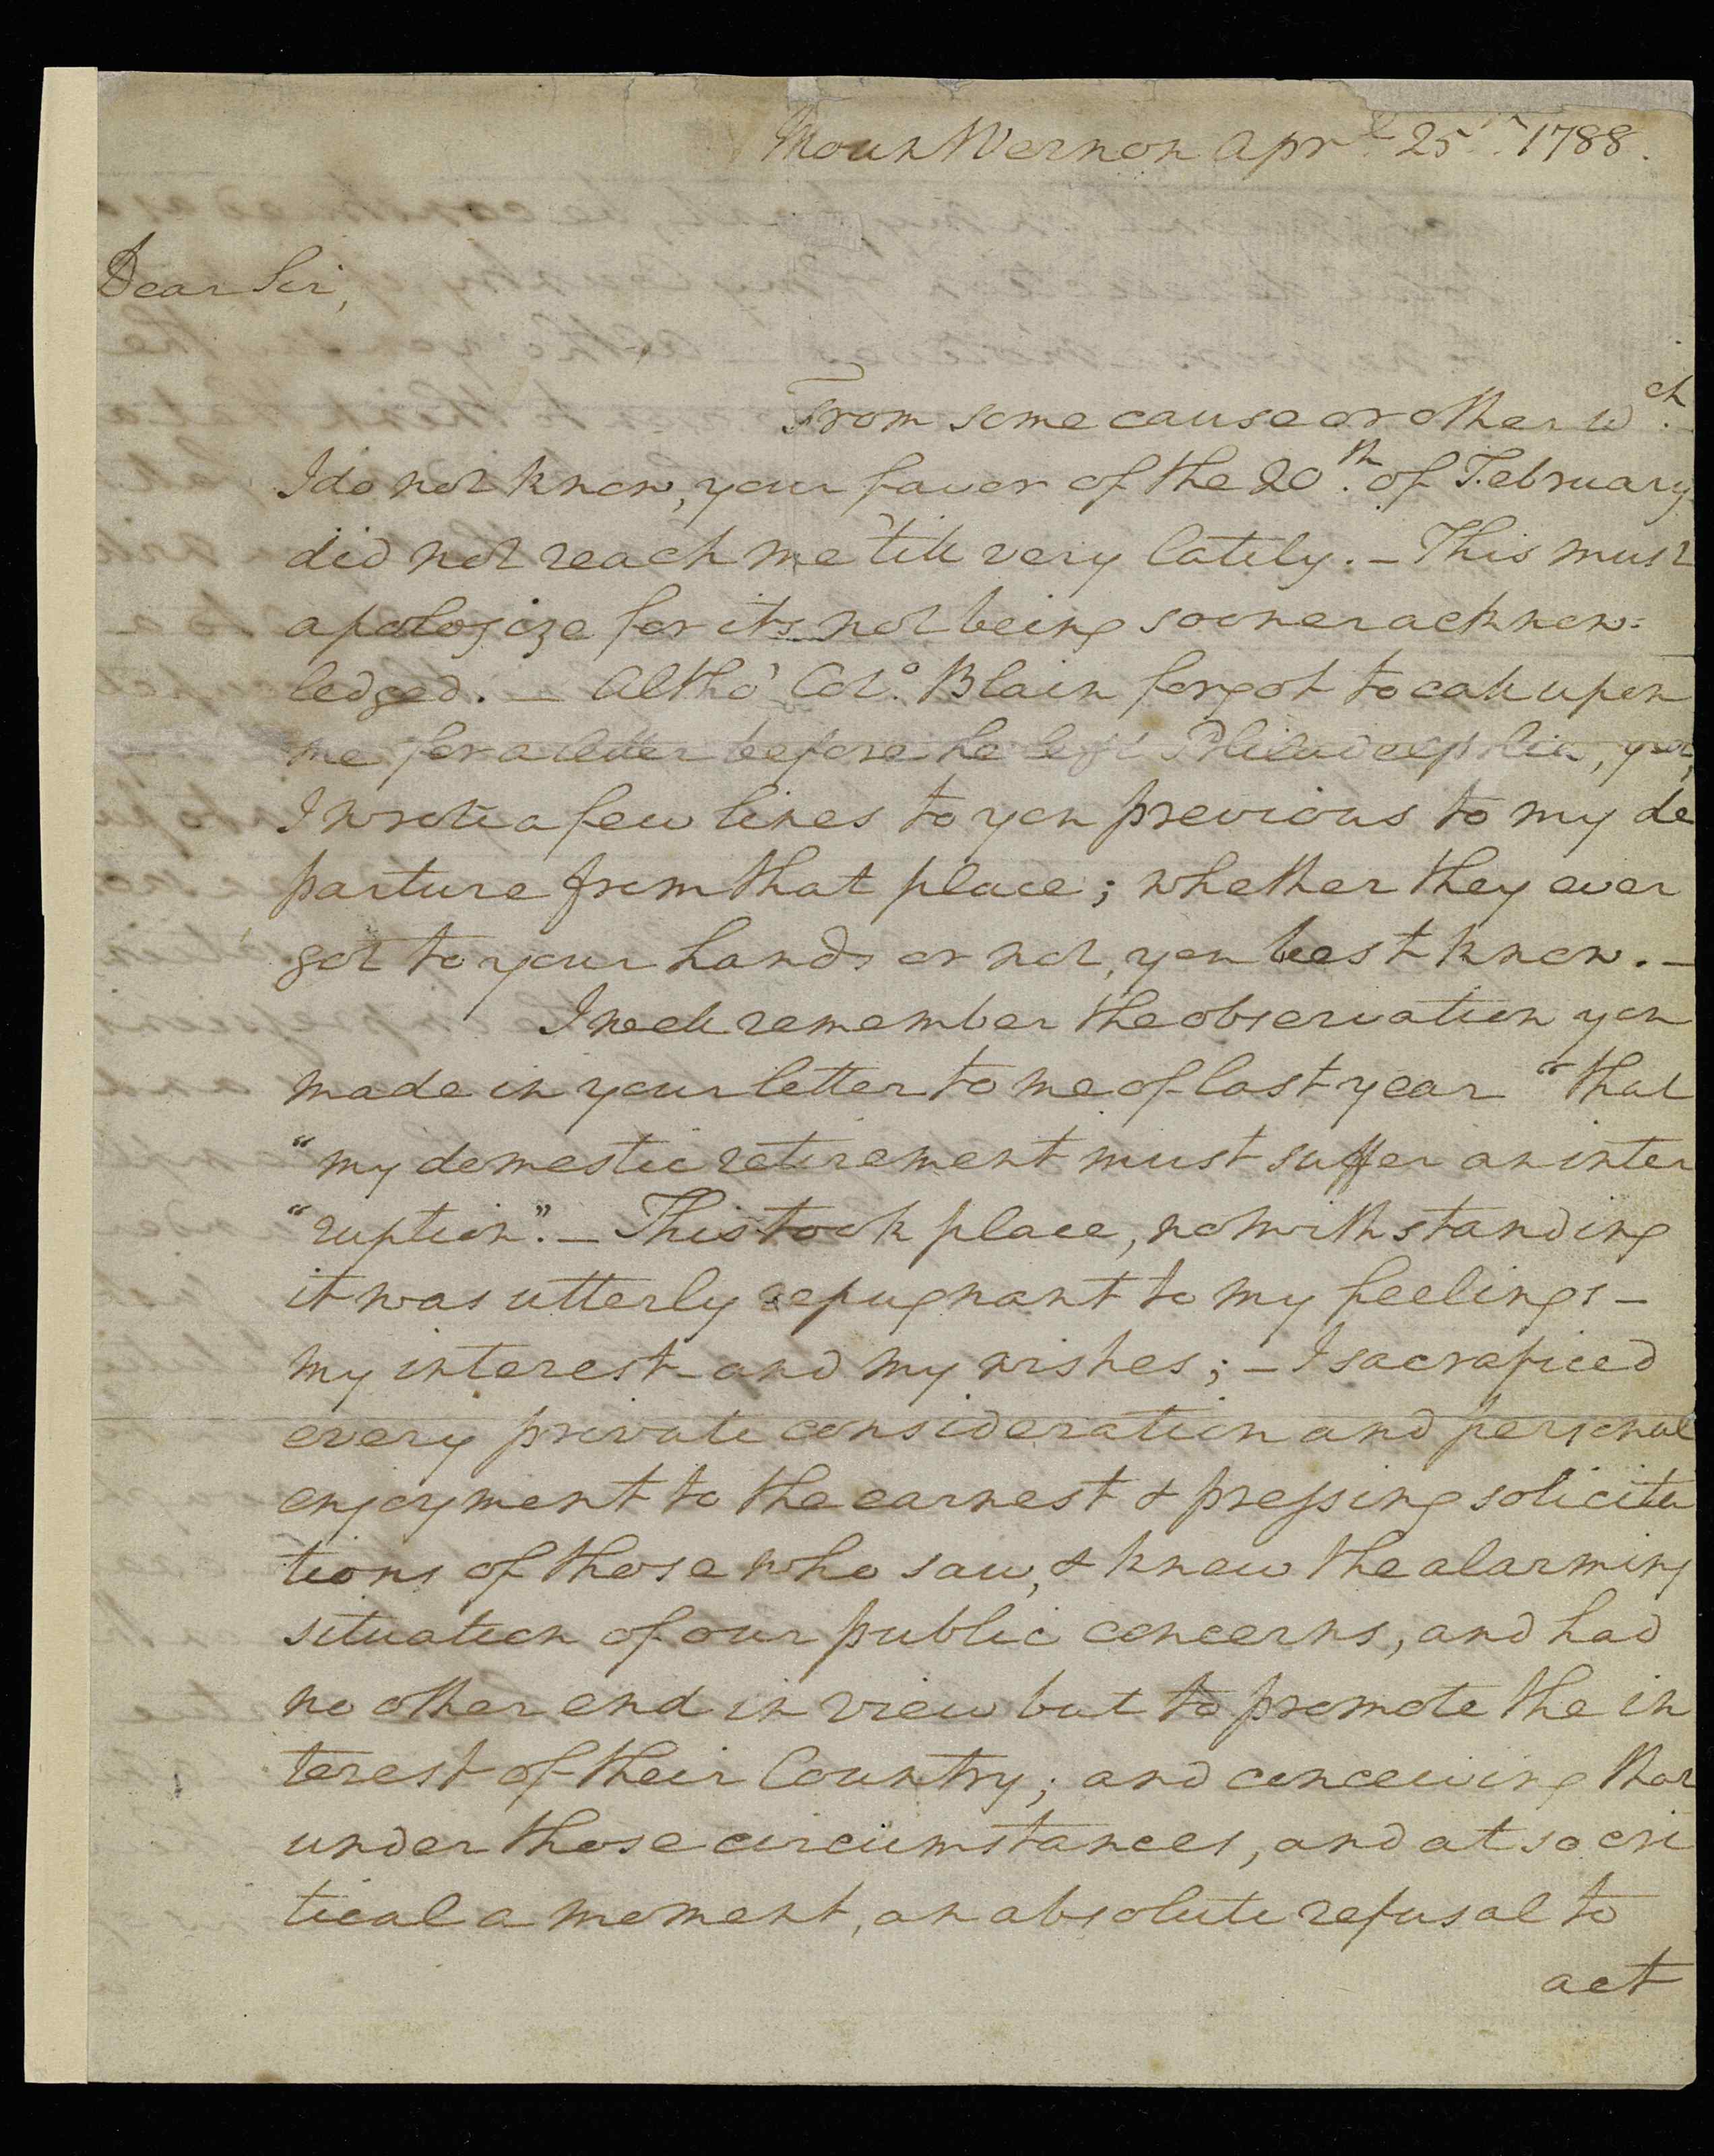 Mount Vernon Aprl 25th 1788.
Dear Sir,
From some cause or other wch.
I do not know, your favor of the 20th. of February
did not reach me 'till very lately. – This must
apologize for its not being sooner acknow=
ledged. – Altho' Colo. Blain forgot to call upon
me for a letter before he left Philadelphia, yet,
I wrote a few lines to you previous to my de
parture from that place; whether they ever
got to your hands or not, you best know. –
I well remember the observation you
made in your letter to me of last year “that
“my domestic retirement must suffer an inter
“ruption”. – This took place, notwithstanding
it was utterly repugnant to my feelings –
my interest and my wishes; – I sacraficed
every private consideration and personal
enjoyment to the earnest & pressing solicita
tions of those who saw, & knew the alarming
situation of our public concerns, and had
no other end in view but to promote the in
terest of their Country; and conceiving that
under those circumstances, and at so cri
tical a moment, an absolute refusal to
act